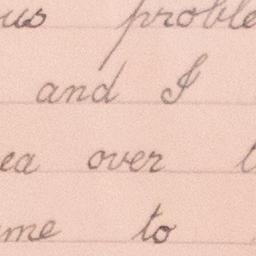 us proble
and I
ea over t
me to